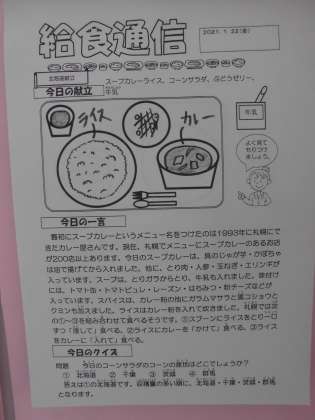 給食通信
2021.1.22(金)
北海道献立
スープカレーライス、コーンサラダ、ぶどうゼリー、
今日の献立
牛乳
ライス
カレー
牛乳
よく見て
もりつけ
ましょう。
今日の一言
最初にスープカレーというメニュー名をつけたのは1993年に札幌にで
きたカレー屋さんです。現在、札幌でメニューにスープカレーのあるお店
が200店以上あります。今日のスープカレーは、具のじゃが芋・かぼちゃ
は油で揚げてから入れました。他に、とり肉・人参・玉ねぎ・エリンギが
入っています。スープは、とりガラからとり、牛乳も入れました。味付け
には、トマト缶・トマトピューレ・レーズン・はちみつ・粉チーズなどが
入っています。スパイスは、カレー粉の他にガラムマサラと黒コショウと
クミンも加えました。ライスはカレー粉を入れて炊きました。札幌では次
の①～③を組み合わせて食べるそうです。①スプーンにライスをとり一口
ずつ「浸して」食べる。②ライスにカレーを「かけて」食べる。③ライス
をカレーに「入れて」食べる。
今日のクイズ
問題 今日のコーンサラダのコーンの産地はどこでしょうか？
① 北海道 ② 千葉 ③ 茨城 ④ 群馬
答えは①の北海道です。収穫量の多い順に、北海道・千葉・茨城・群馬
となります。